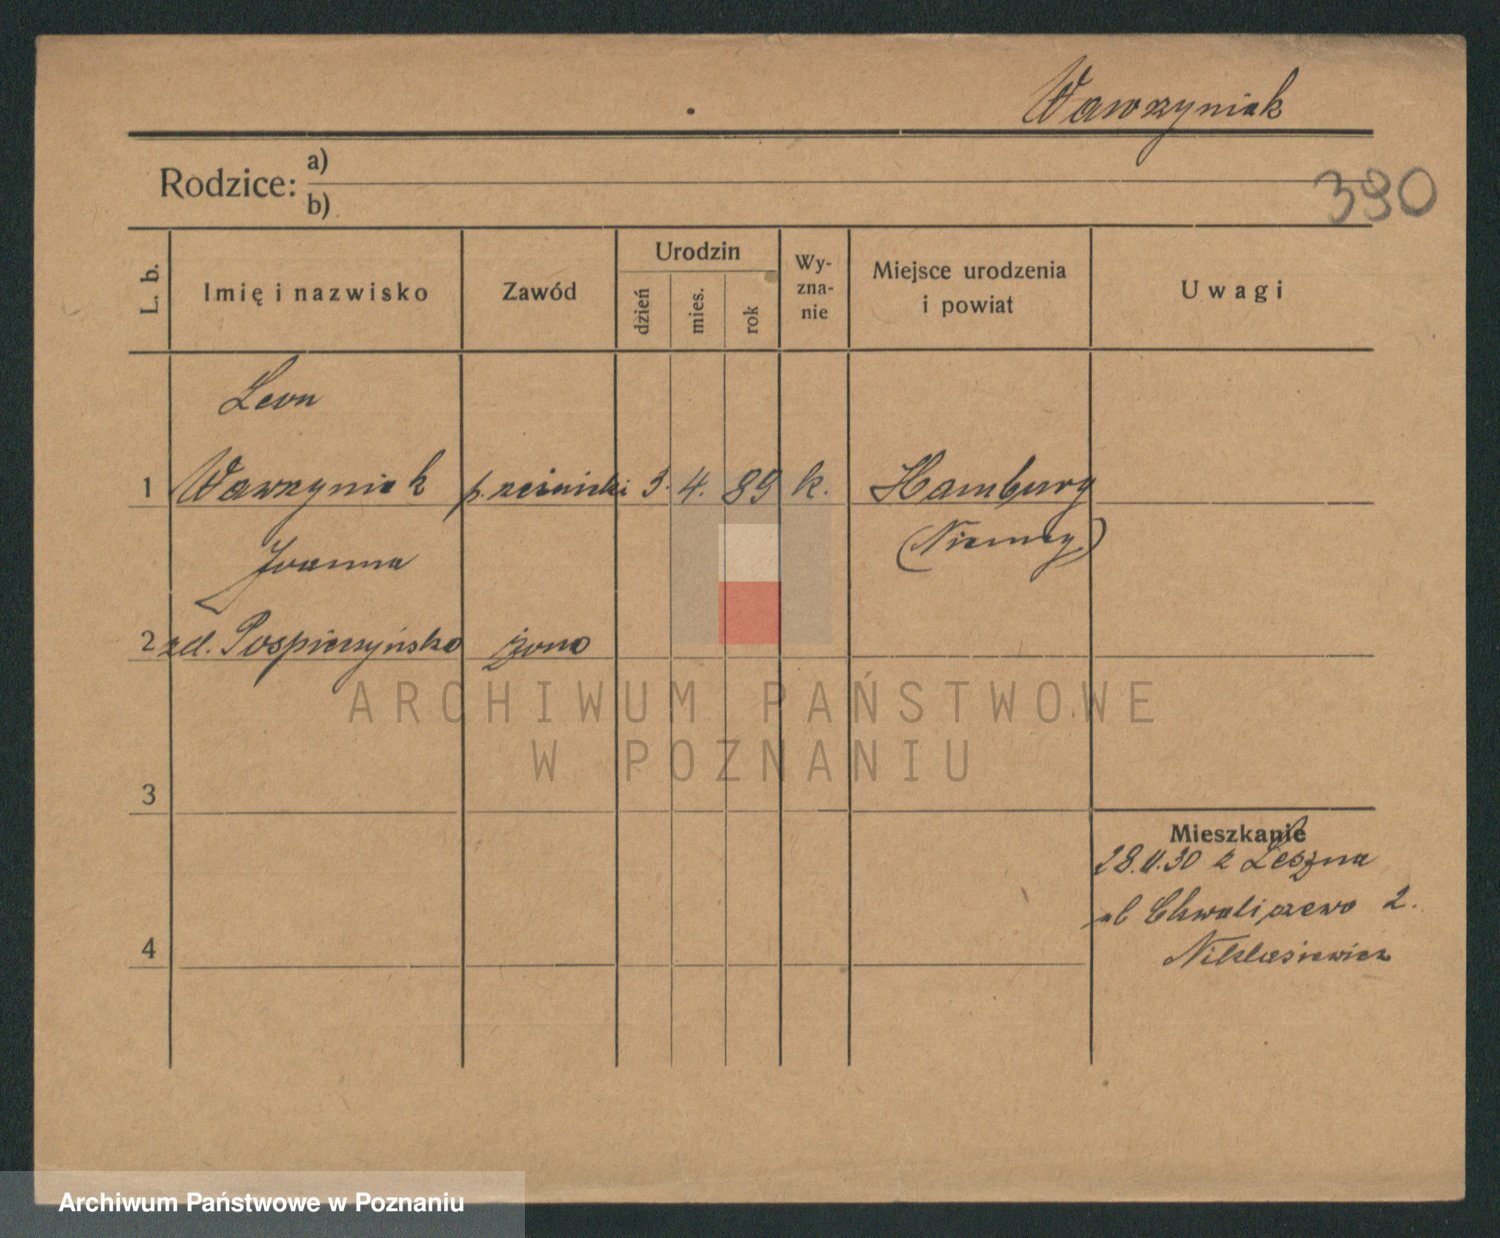 Wawrzyniak
Rodzice: a)
b)
390
L. b.
Imię i nazwisko
Zawód
Urodzin
dzień
mies.
rok
Wy-
zna-
nie
Miejsce urodzenia
i powiat
Uwagi
Leon
1 Wawrzyniak p. rzeźnicki 3. 4. 89 k. Hamburg
(Niemcy)
Joanna
2 zd. Pospieszyńska żona
ARCHIWUM PAŃSTWOWE
W POZNANIU
3
Mieszkanie
28.11.30 z Leszna
ul Chwaliszewo 2.
4
Niklasiewicz
Archiwum Państwowe w Poznaniu